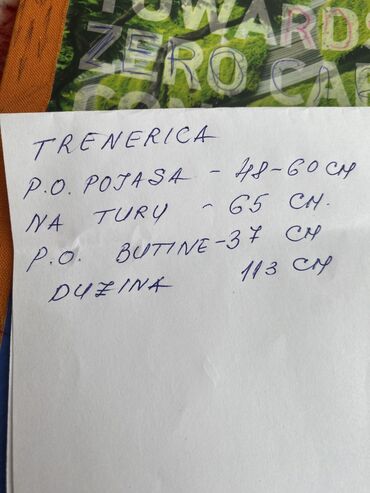 TOWARDS
ZERO CAR
TRENERICA
P.O. POJASA - 48-60 CM
NA TURU - 65 CM.
P.O. BUTINE - 37 CM
DUZINA 113 CM